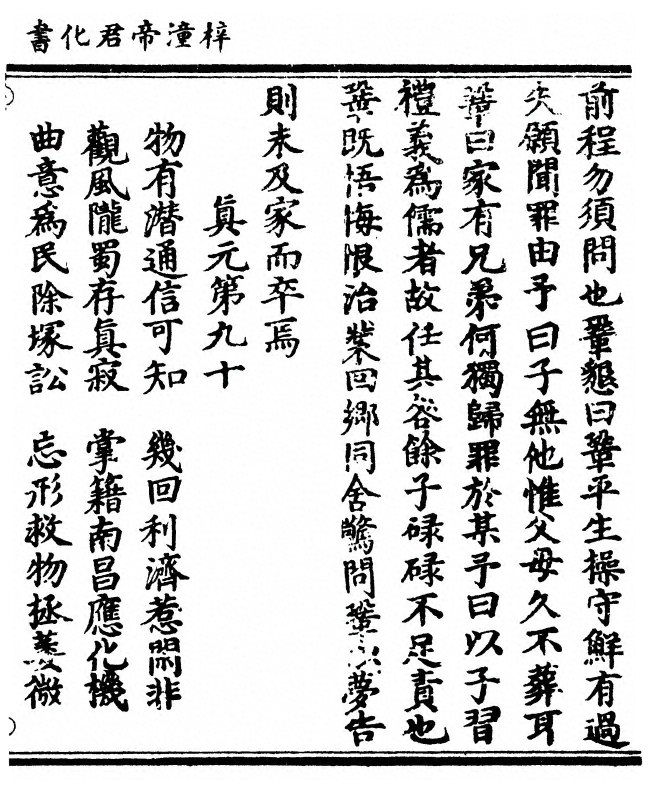 梓潼帝君化書
前程勿須問也鞏懇曰鞏平生操守鮮有過
失願聞罪由予曰子無他惟父母久不葬耳
鞏曰家有兄弟何獨歸罪於某予曰以子習
禮義為儒者故任其咎餘子碌碌不足責也
鞏既悟悔恨治裝回鄉同舍驚問鞏以夢告
則未及家而卒焉
真元第九十
物有潛通信可知 幾回利濟惹閑非
觀風隴蜀存真寂 掌籍南昌應化機
曲意為民除塚訟 忘形救物拯羸微